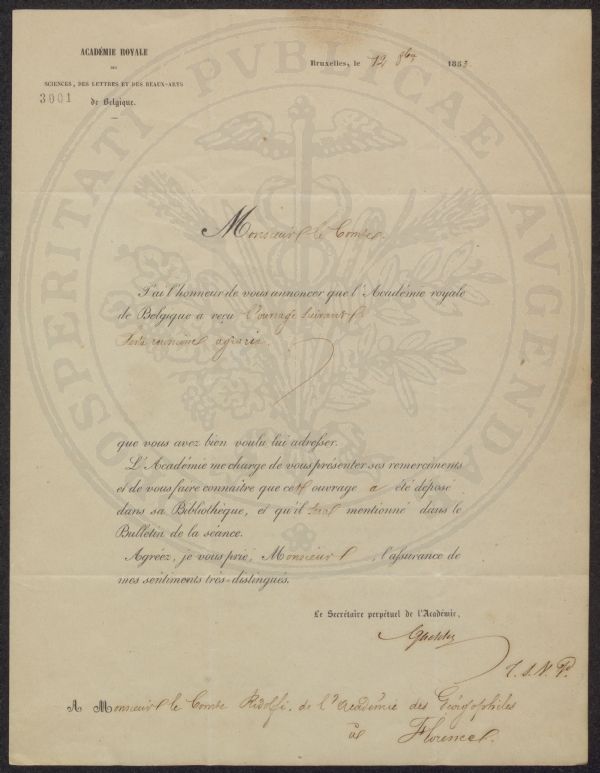 ACADÉMIE ROYALE
DES
SCIENCES, DES LETTRES ET DES BEAUX-ARTS
de Belgique.
3001
Bruxelles, le 12 8bre 1853.
PROSPERITATI PVBLICAE AVGENDAE
Monsieur le Comte.
J'ai l'honneur de vous annoncer que l'Académie royale
de Belgique a reçu l'ouvrage suivant
agrarie.
que vous avez bien voulu lui adresser.
L'Académie me charge de vous présenter ses remercîments
et de vous faire connaître que cet ouvrage a été déposé
dans sa Bibliothèque, et qu'il sera mentionné dans le
Bulletin de la séance.
Agréez, je vous prie, Monsieur, l'assurance de
mes sentiments très-distingués.
Le Secrétaire perpétuel de l'Académie,
Quetelet
A Monsieur le Comte Ridolfi, de l'Académie des Géorgophiles
à Florence.